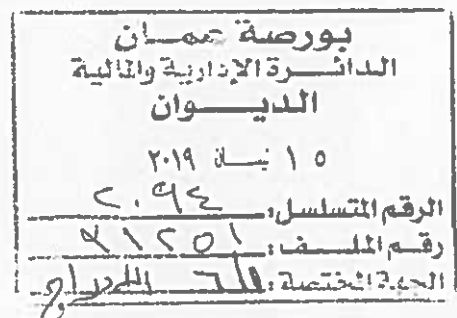 بورصة عمان
الدائرة الإدارية والمالية
الديوان
١٥ نيسان ٢٠١٩
الرقم المتسلسل: ٢٠٩٤
رقم الملف: ٣١٢٥١
الجهة المختصة: